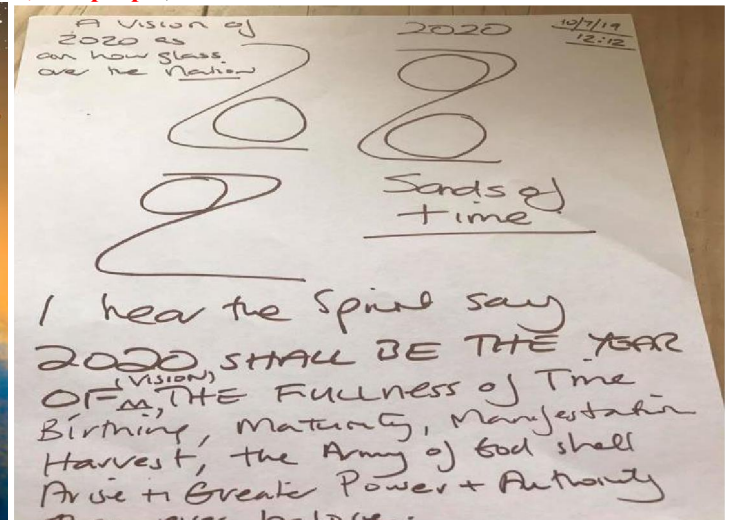 A Vision of
2020 as
an hour glass
over the Nation
2020
10/7/19
12:12
Sands of
Time
I hear the Spirit say
2020 SHALL BE THE YEAR
OF (VISION), THE FULLNESS of Time
Birthing, Maturity, Manifestation
Harvest, the Army of God shall
Arise in Greater Power + Authority